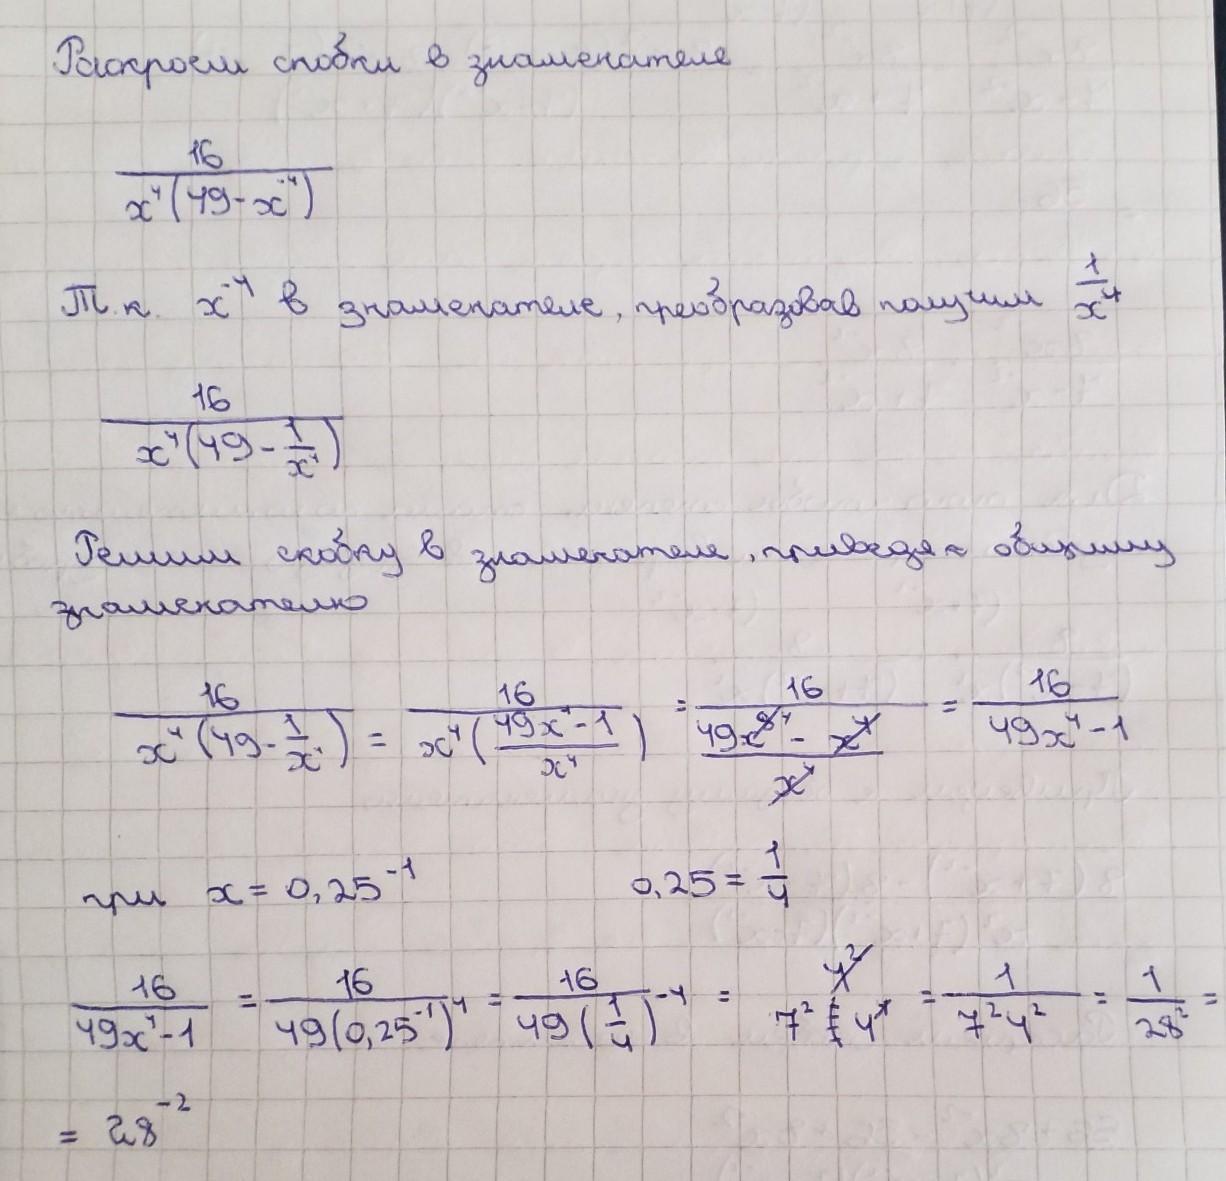 Раскроем скобки в знаменателе
16/(x⁴(49-x⁻⁴))
Т.к. x⁻⁴ в знаменателе, преобразовав получим 1/x⁴
16/(x⁴(49-1/x⁴))
Решим скобку в знаменателе, приведя к общему
знаменателю
16/(x⁴(49-1/x⁴)) = 16/(x⁴((49x⁴-1)/x⁴)) = 16/((49x⁸⁴ - x⁴)/x⁴) = 16/(49x⁴-1)
при x = 0,25⁻¹ 0,25 = 1/4
16/(49x⁴-1) = 16/(49(0,25⁻¹)⁴) = 16/(49(1/4)⁻⁴) = 4²/(7² 4⁴) = 1/(7²4²) = 1/28² =
= 28⁻²